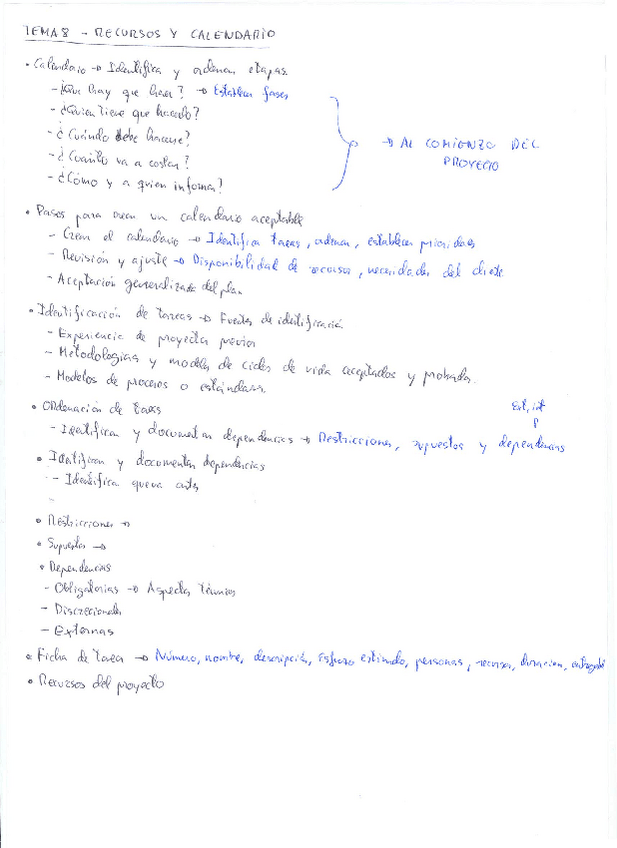 TEMA 8 - RECURSOS Y CALENDARIO
• Calendario → Identifica y ordenan etapas.
- ¿Qué hay que hacer? → Establecer fases
- ¿Quien tiene que hacerlo?
- ¿Cuándo debe hacerse?
- ¿Cuánto va a costar?
- ¿Cómo y a quien informar?
→ AL COMIENZO DEL
PROYECTO
• Pasos para crear un calendario aceptable
- Crear el calendario → Identifica tareas, ordenar, establecer prioridades
- Revisión y ajuste → Disponibilidad de recursos, necesidades del cliente
- Aceptación generalizada del plan
• Identificación de tareas → Fuentes de identificación
- Experiencia de proyectos previos
- Metodologías y modelos de ciclos de vida aceptados y probados.
- Modelos de procesos o estándares.
• Ordenación de tareas
Ext, int
- Identifican y documentan dependencias → Restricciones, supuestos y dependencias
• Identifican y documentan dependencias
- Identifica que va antes
• Restricciones →
• Supuestos →
• Dependencias
- Obligatorias → Aspectos Técnicos
- Discrecionales
- Externas
• Ficha de tarea → Número, nombre, descripción, Esfuerzo estimado, personas, recursos, duracion, entregable
• Recursos del proyecto